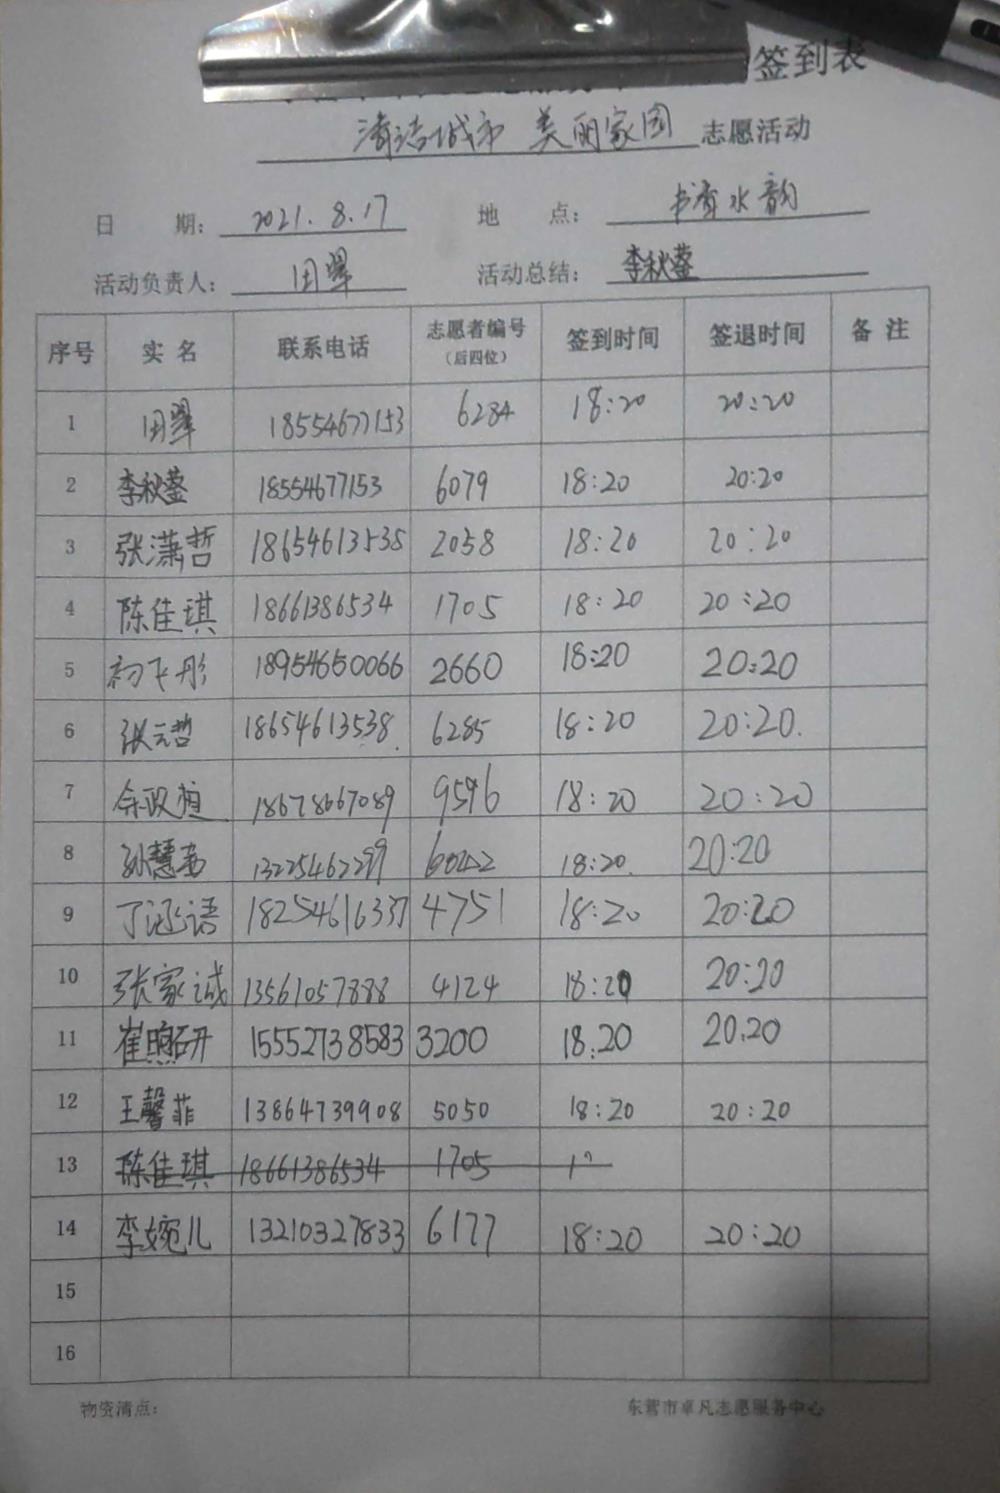 签到表
清洁城市 美丽家园 志愿活动
日 期: 2021.8.17 地 点: 书香水韵
活动负责人: 田翠 活动总结: 李秋蓥
序号 实名 联系电话 志愿者编号(后四位) 签到时间 签退时间 备注
1 田翠 18554677153 6284 18:20 20:20
2 李秋蓥 18554677153 6079 18:20 20:20
3 张潇哲 18654613538 2058 18:20 20:20
4 陈佳琪 18661386534 1705 18:20 20:20
5 初飞彤 18954650066 2660 18:20 20:20
6 张元哲 18654613538. 6285 18:20 20:20.
7 余政恒 18678667089 9596 18:20 20:20
8 孙慧 13225462299 6042 18:20. 20:20
9 丁涵语 18254616337 4751 18:20 20:20
10 张家诚 13561057888 4124 18:20 20:20
11 崔煦研 15552738583 3200 18.20 20.20
12 王馨菲 13864739908 5050 18:20 20:20
13 陈佳琪 18661386534 1705
14 李婉儿 13210327833 6177 18:20 20:20
15
16
物资清点: 东营市卓凡志愿服务中心